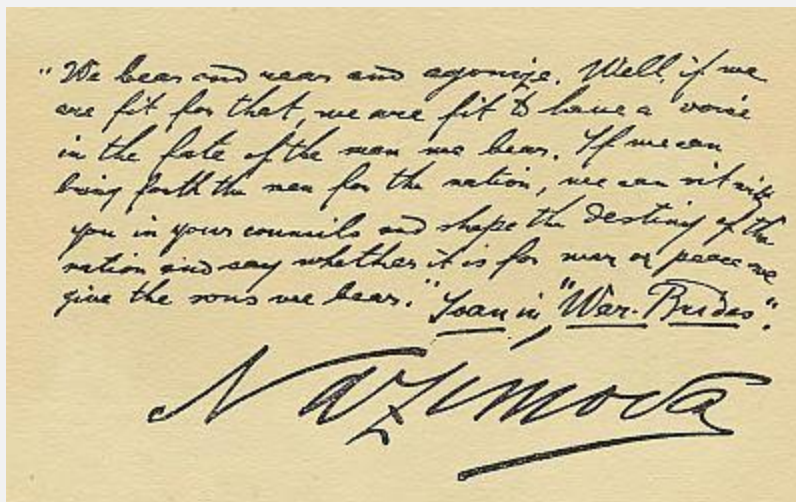 "We bear and rear and agonize. Well, if we
are fit for that, we are fit to have a voice
in the fate of the men we bear. If we can
bring forth the men for the nation, we can sit with
you in your councils and shape the destiny of the
nation and say whether it is for war or peace we
give the sons we bear." Joan in "War-Brides".
Nazimova